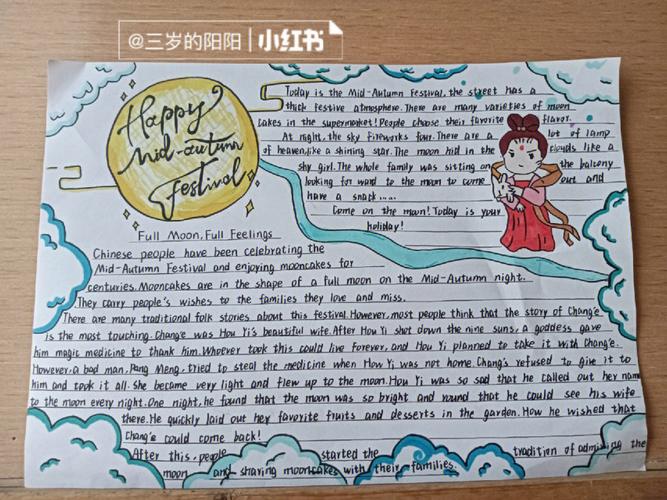 @三岁的阳阳 小红书
Happy
Mid-autumn
Festival
Today is the Mid-Autumn Festival, the street has a
thick festive atmosphere. There are many varieties of moon
cakes in the supermarket! People choose their favorite flavor.
At night, the sky fireworks four. There are a lot of lamp
of heaven, like a shining star. The moon hid in the clouds like a
shy girl. The whole family was sitting on the balcony
looking for ward to the moon to come out and
have a snack.....
Come on the moon! Today is your
holiday!
Full Moon, Full Feelings
Chinese people have been celebrating the
Mid-Autumn Festival and enjoying mooncakes for
centuries. Mooncakes are in the shape of a full moon on the Mid-Autumn night.
They carry people's wishes to the families they love and miss.
There are many traditional folk stories about this festival. However, most people think that the story of Chang'e
is the most touching. Chang'e was Hou Yi's beautiful wife. After Hou Yi shot down the nine suns, a goddess gave
him magic medicine to thank him. Whoever took this could live forever, and Hou Yi planned to take it with Chang'e.
However, a bad man, Pang Meng, tried to steal the medicine when Hou Yi was not home. Chang'e refused to give it to
him and took it all. She became very light and flew up to the moon. Hou Yi was so sad that he called out her name
to the moon every night. One night, he found that the moon was so bright and round that he could see his wife
there. He quickly laid out her favorite fruits and desserts in the garden. How he wished that
Chang'e could come back!
After this, people started the tradition of admiring the
moon and sharing mooncakes with their families.